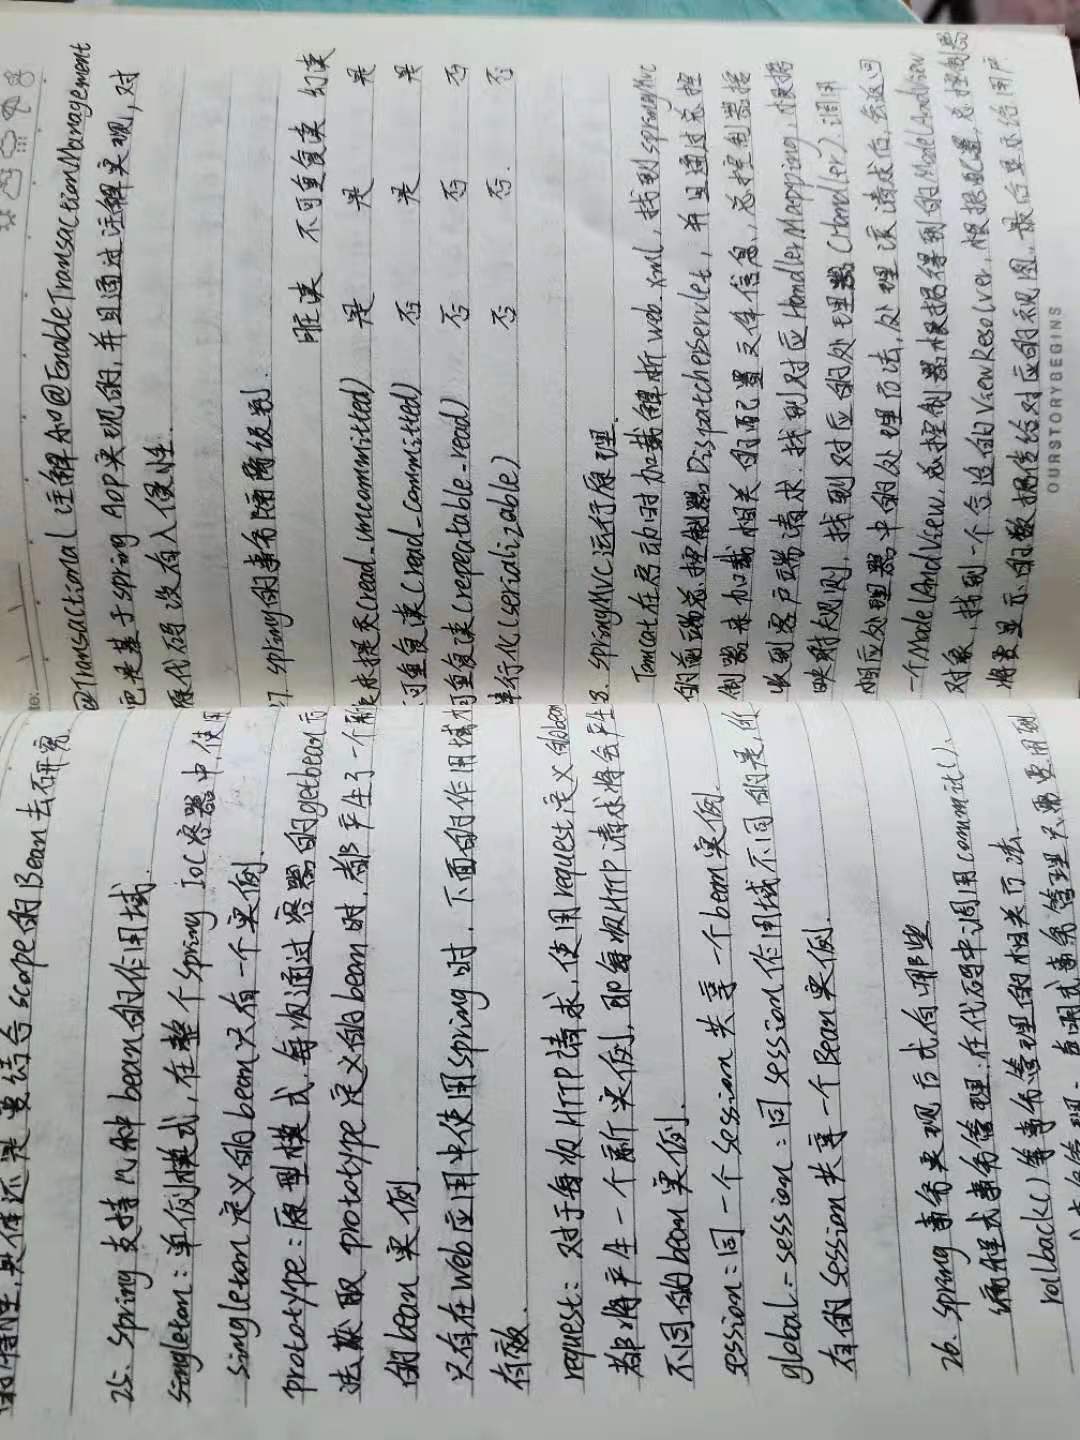 的特性,具体还是要结合scope的Bean去研究.
25. Spring支持几种bean的作用域.
singleton:单例模式,在整个Spring IoC容器中,使用
singleton定义的bean只有一个实例.
prototype:原型模式.每次通过容器的getbean方
法获取prototype定义的bean时,都产生了一个新
的bean实例
只有在Web应用中使用Spring时,下面的作用域才
有效.
request:对于每次HTTP请求,使用request定义的bean
都将产生一个新实例,即每次HTTP请求将会产生
不同的bean实例.
session:同一个session共享一个bean实例.
global-session:同session作用域不同的是,所
有的session共享一个Bean实例.
26. Spring事务实现方式有哪些
编程式事务管理:在代码中调用commit()、
rollback()等事务管理的相关方法
声明式事务管理只需要用到
@Transactional注解和@EnableTransactionManagement
它是基于Spring AOP实现的,并且通过注解实现,对
原代码没有入侵性.
27. Spring的事务隔离级别.
脏读 不可重复读 幻读
读未提交(read_uncommitted) 是 是 是
可重复读(read_committed) 否 是 是
可重复读(repeatable_read) 否 否 否
串行化(serializable) 否 否. 否
28. SpringMVC运行原理.
Tomcat在启动时加载解析web.xml,找到SpringMVC
的前端总控制器DispatcherServlet,并且通过总控
制器来加载相关的配置文件信息,总控制器接
收到客户端请求.找到对应HandlerMapping,根据
映射规则,找到对应的处理器(Handler).调用
相应处理器中的处理方法,处理该请求后,会返回
一个ModelAndView,总控制器根据得到的ModelAndView
对象,找到一个合适的ViewResolver,根据配置,总控制器
将要显示的数据传给对应的视图.最后显示给用户
OURSTORYBEGINS